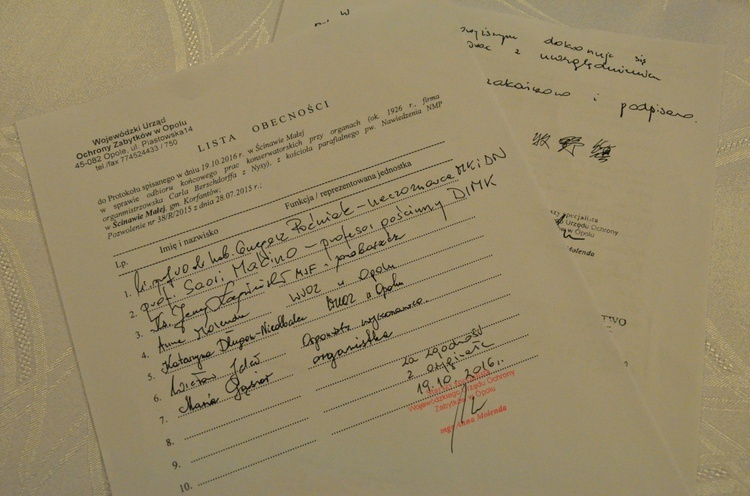 Wojewódzki Urząd
Ochrony Zabytków w Opolu
45-082 Opole, ul. Piastowska14
tel./fax 774524433 / 750
LISTA OBECNOŚCI
do Protokołu spisanego w dniu 19.10.2016 r. w Ścinawie Małej
w sprawie odbioru końcowego prac konserwatorskich przy organach (ok 1926 r., firma
organmistrzowska Carla Berschdorffa z Nysy), z kościoła parafialnego pw. Nawiedzenia NMP
w Ścinawie Małej, gm. Korfantów;
Pozwolenie nr 38/R/2015 z dnia 28.07.2015 r.;
Lp. Imię i nazwisko Funkcja / reprezentowana jednostka
1. prof. hab. Grzegorz Poźniak - rzeczoznawca MKiDN
2. prof. Saori Makino - profesor gościnny DIMK
3. Ks. Jerzy MSF - proboszcz
4. Anna Molenda WUOZ w Opolu
5. Katarzyna Długosz-Niedbalska WUOZ w Opolu
6. Wiesław Jeleń organmistrz wykonawca
7. Maria Gąsior organistka
8.
9.
10.
za zgodność
z oryginałem
19.10.2016 r.
Wojewódzkiego Urzędu Ochrony
Zabytków w Opolu
mgr Anna Molenda
dokonuje się
z uwzględnieniem
zakończono i podpisano.
牧野
specjalista
Urzędu Ochrony
w Opolu
Molenda